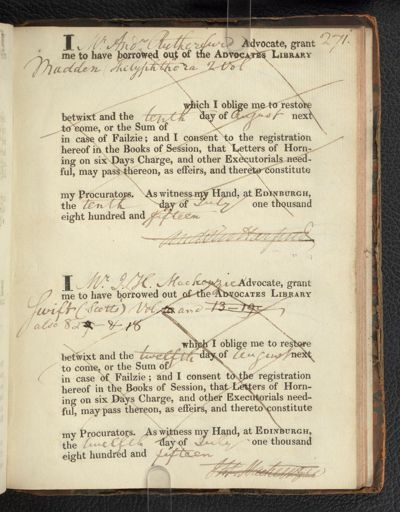 I Mr Andw Rutherfurd Advocate, grant 271.
me to have borrowed out of the ADVOCATES LIBRARY
Madden, 2 Vol
which I oblige me to restore
betwixt and the tenth day of August next
to come, or the Sum of
in case of Failzie; and I consent to the registration
hereof in the Books of Session, that Letters of Horn-
ing on six Days Charge, and other Executorials need-
ful, may pass thereon, as effeirs, and thereto constitute
my Procurators. As witness my Hand, at EDINBURGH,
the tenth day of July one thousand
eight hundred and fifteen
I Mr J. H. Mackenzie Advocate, grant
me to have borrowed out of the ADVOCATES LIBRARY
Swift (Scotts) Vol and 13-19
also 8 & 18
which I oblige me to restore
betwixt and the twelfth day of August next
to come, or the Sum of
in case of Failzie; and I consent to the registration
hereof in the Books of Session, that Letters of Horn-
ing on six Days Charge, and other Executorials need-
ful, may pass thereon, as effeirs, and thereto constitute
my Procurators. As witness my Hand, at EDINBURGH,
the twelfth day of July one thousand
eight hundred and fifteen